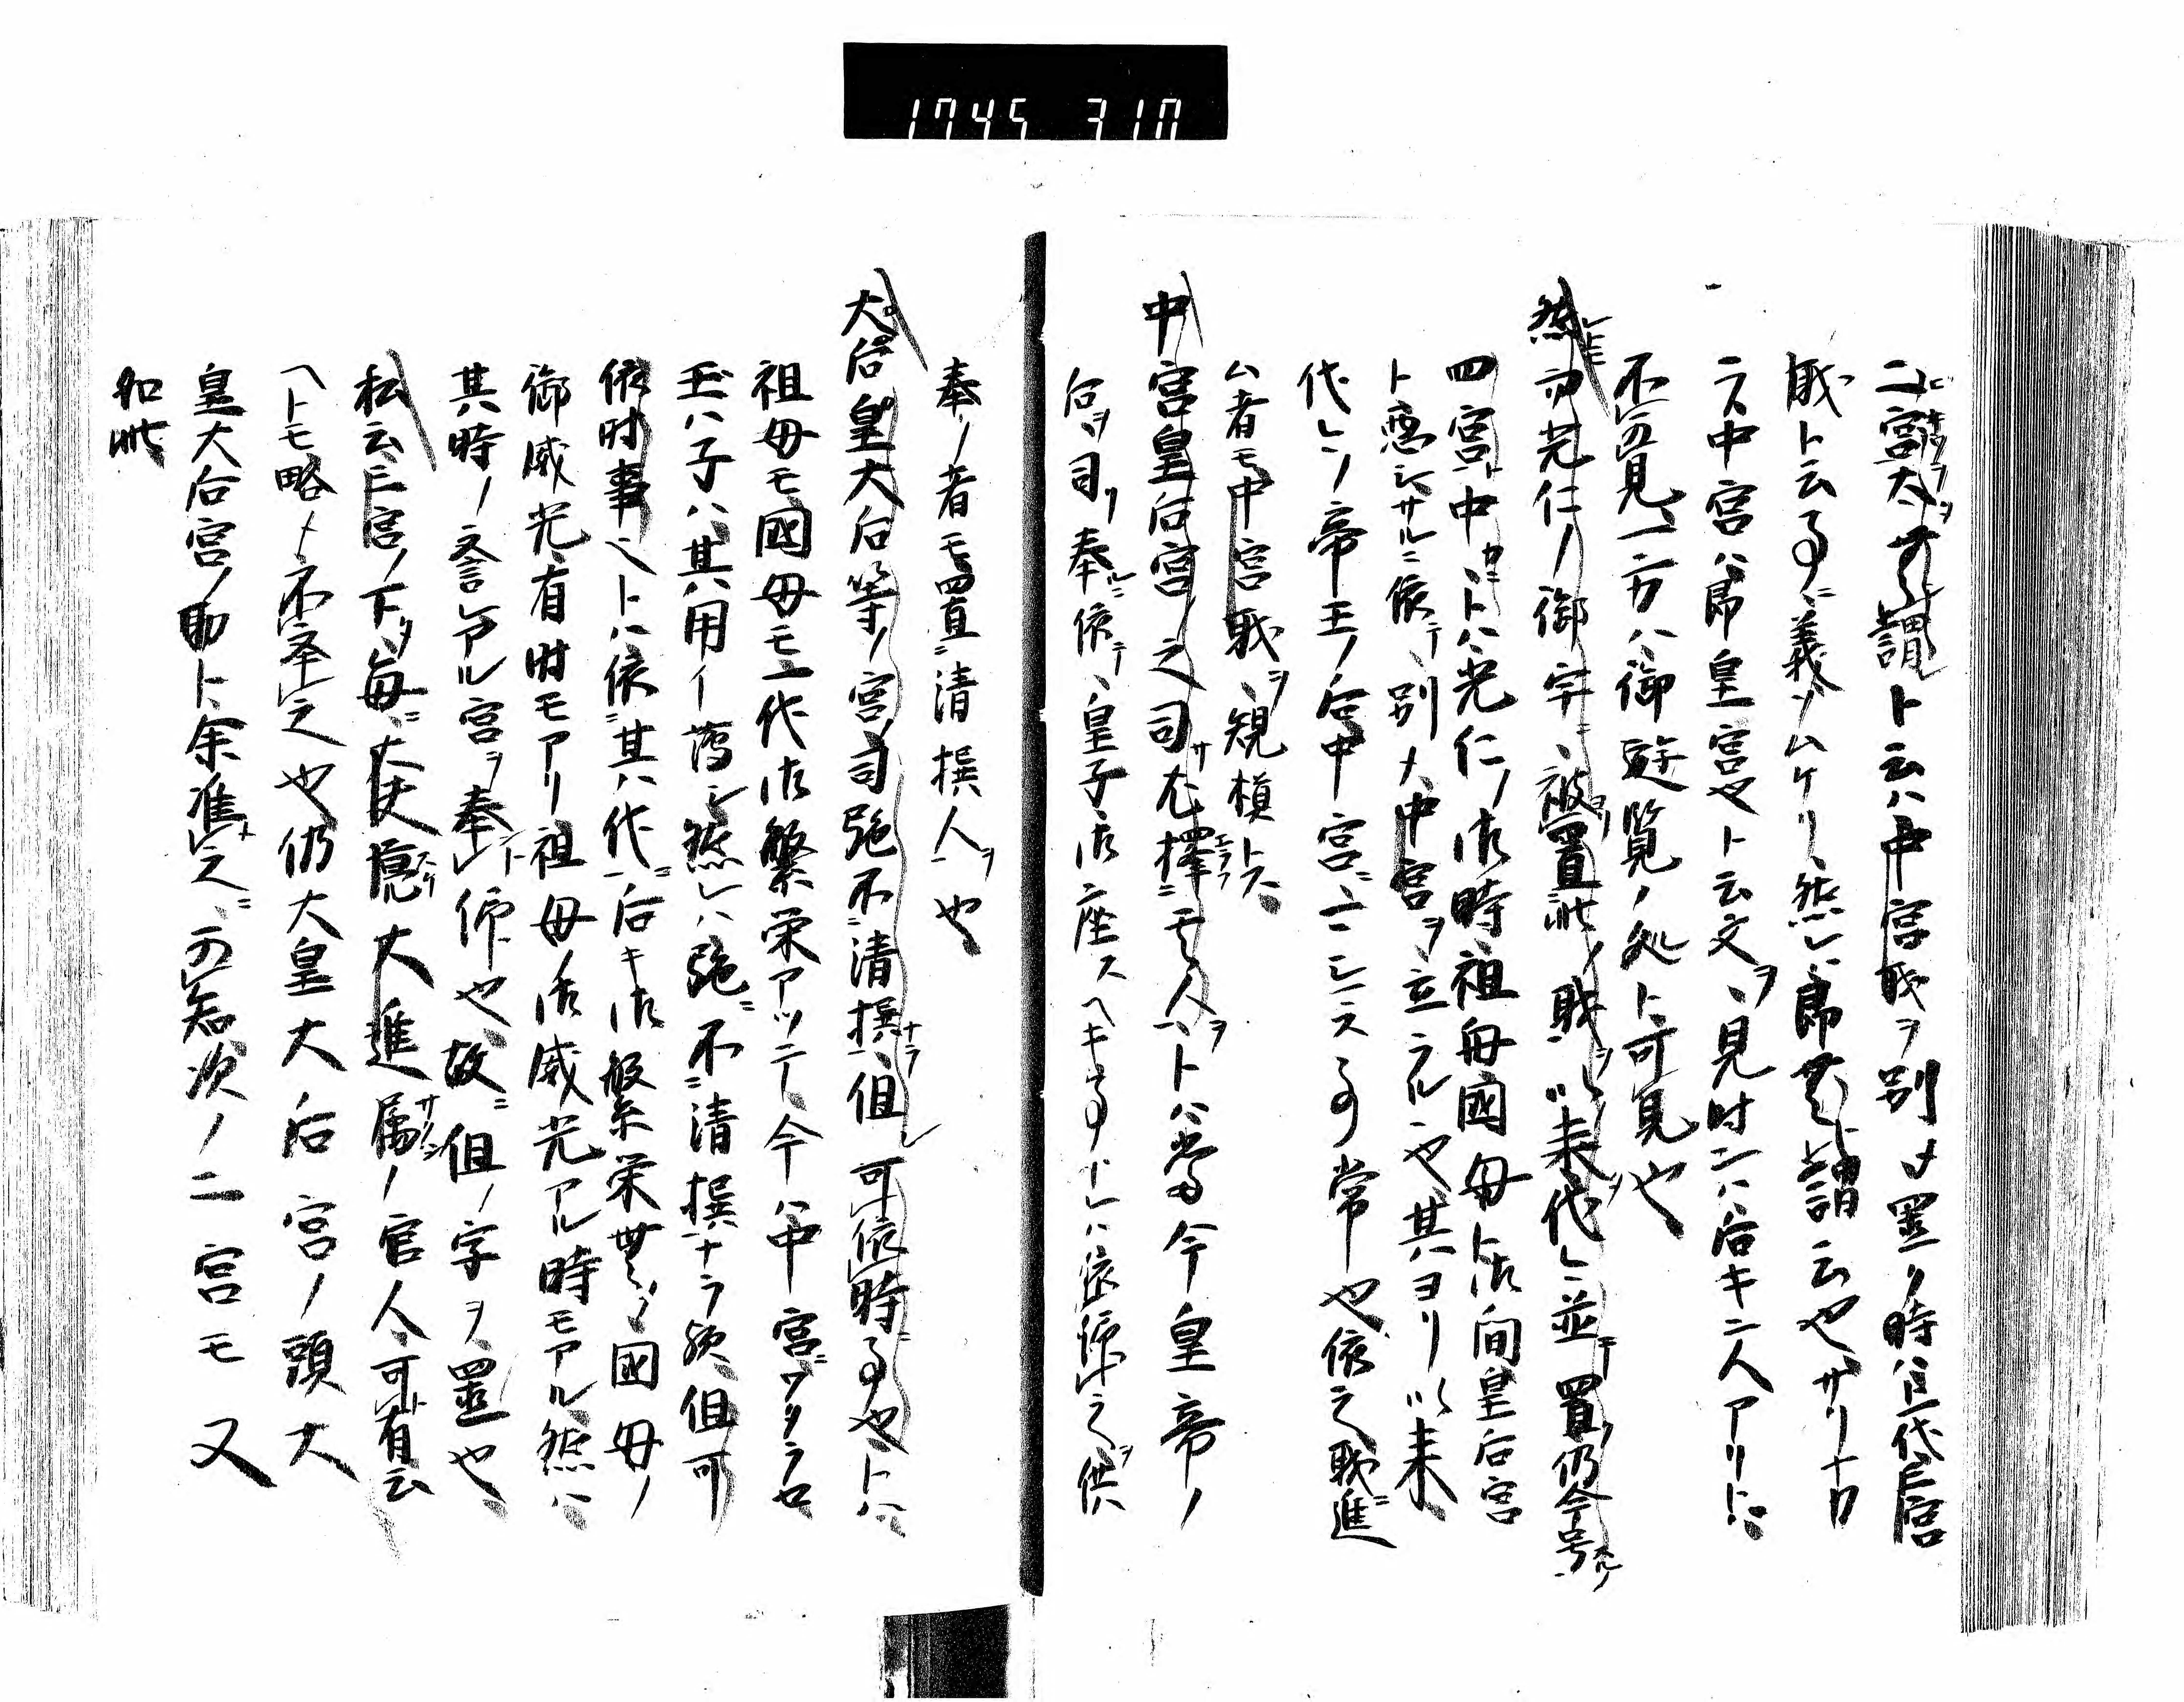 1745 310
二宮太 謂ト云ハ中宮職ヲ別メ置ノ時ハ一代三宮
職ト云事ノ義ソムケリ然レハ即 謂云也サリナカ
ラ中宮ハ即皇宮也ト云文ヲ見時ンハ后キ二人アリトハ
不可見一方ハ御遊覧ノ処ト可見也
然ルヲ光仁ノ御宇ニ被置此ノ職ヲ以来代レニ並テ置仍今号
四宮ト中カニトハ光仁ノ御時祖母國母ト御間皇后宮
ト悪シサルニ依テ別メ中宮ヲ立ラルヽ也其ヨリ以来
代レノ帝王ノ后中宮ニ マシマス事常也依之職ニ進
ム者モ中宮職ヲ規模トス
中宮皇后宮之司サ尤択ニモ人ヲトハ当今皇帝ノ
后ヲ司リ奉ルニ依テ皇子御座スヘキ事ナレハ依ヲ供
奉ノ者モ四直ニ清撰人ヲ也
大后皇大后等ノ宮ノ司強不清撰ナラ但シ可依時事也トハ
祖母モ國母モ一代御繁栄アツテ今ハ中宮ニワタラセ
玉ハ子ハ其ハ用イ薄シ然レハ強ニ不清撰ナラ 但可
依時事ヘトハ依ニ其ハ代ニ后キ御繁栄 國母ノ
御威光有时モアリ祖母ノ御威光アル時モアル然ハ
其ハ時ノ誉レアル宮ヲ奉 仰也故ニ但ノ字ヲ置也
私云三宮ノ下タ毎ニ大夫 大進属ノ官人可有云
ヘトモ略メ不 之也仍大皇大后宮ノ頭大
皇大后宮ノ助ト余准メ之ニ可知次ノ二宮モ又
如此